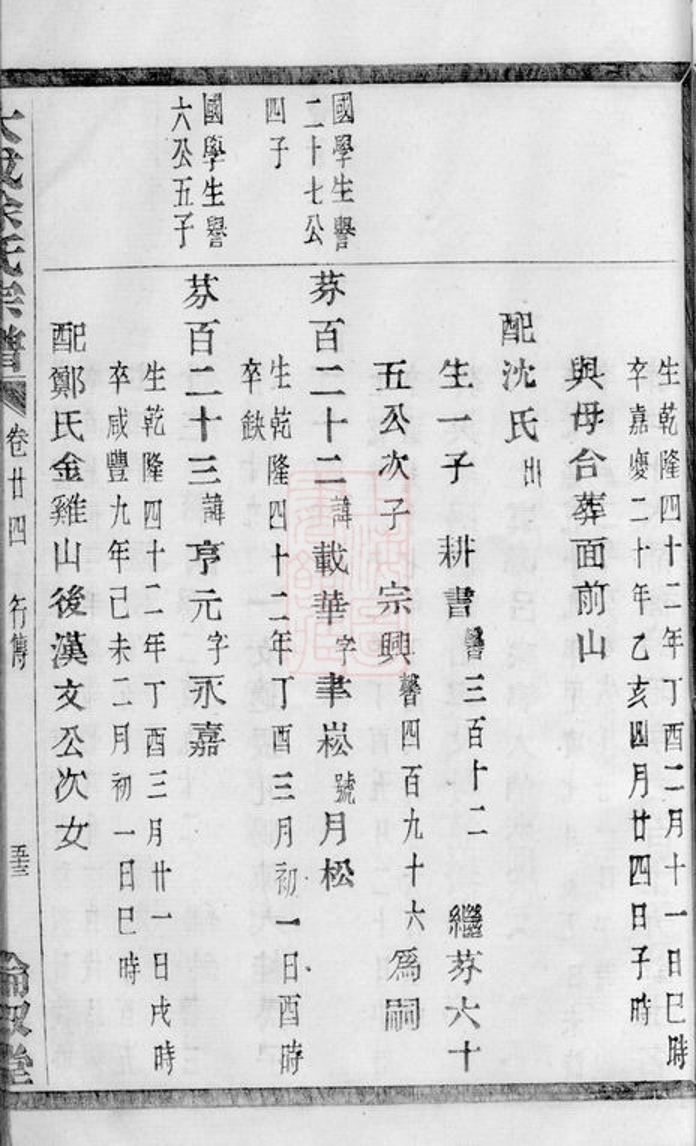 生乾隆四十二年丁酉二月十一日巳時
卒嘉慶二十年乙亥四月廿四日子時
與母合葬面前山
配沈氏出
生一子 耕書馨三百十二 繼芬六十
五公次子 宗興馨四百九十六爲嗣
國學生譽
二十七公
四子
芬百二十二諱載華字聿崧號月松
生乾隆四十二年丁酉三月初一日酉時
卒缺
國學生譽
六公五子
芬百二十三諱亨元字永嘉
生乾隆四十二年丁酉三月廿一日戌時
卒咸豐九年己未二月初一日巳時
配鄭氏金雞山後漢文公次女
氏宗譜 卷廿四 行傳 五十三 倫敘堂